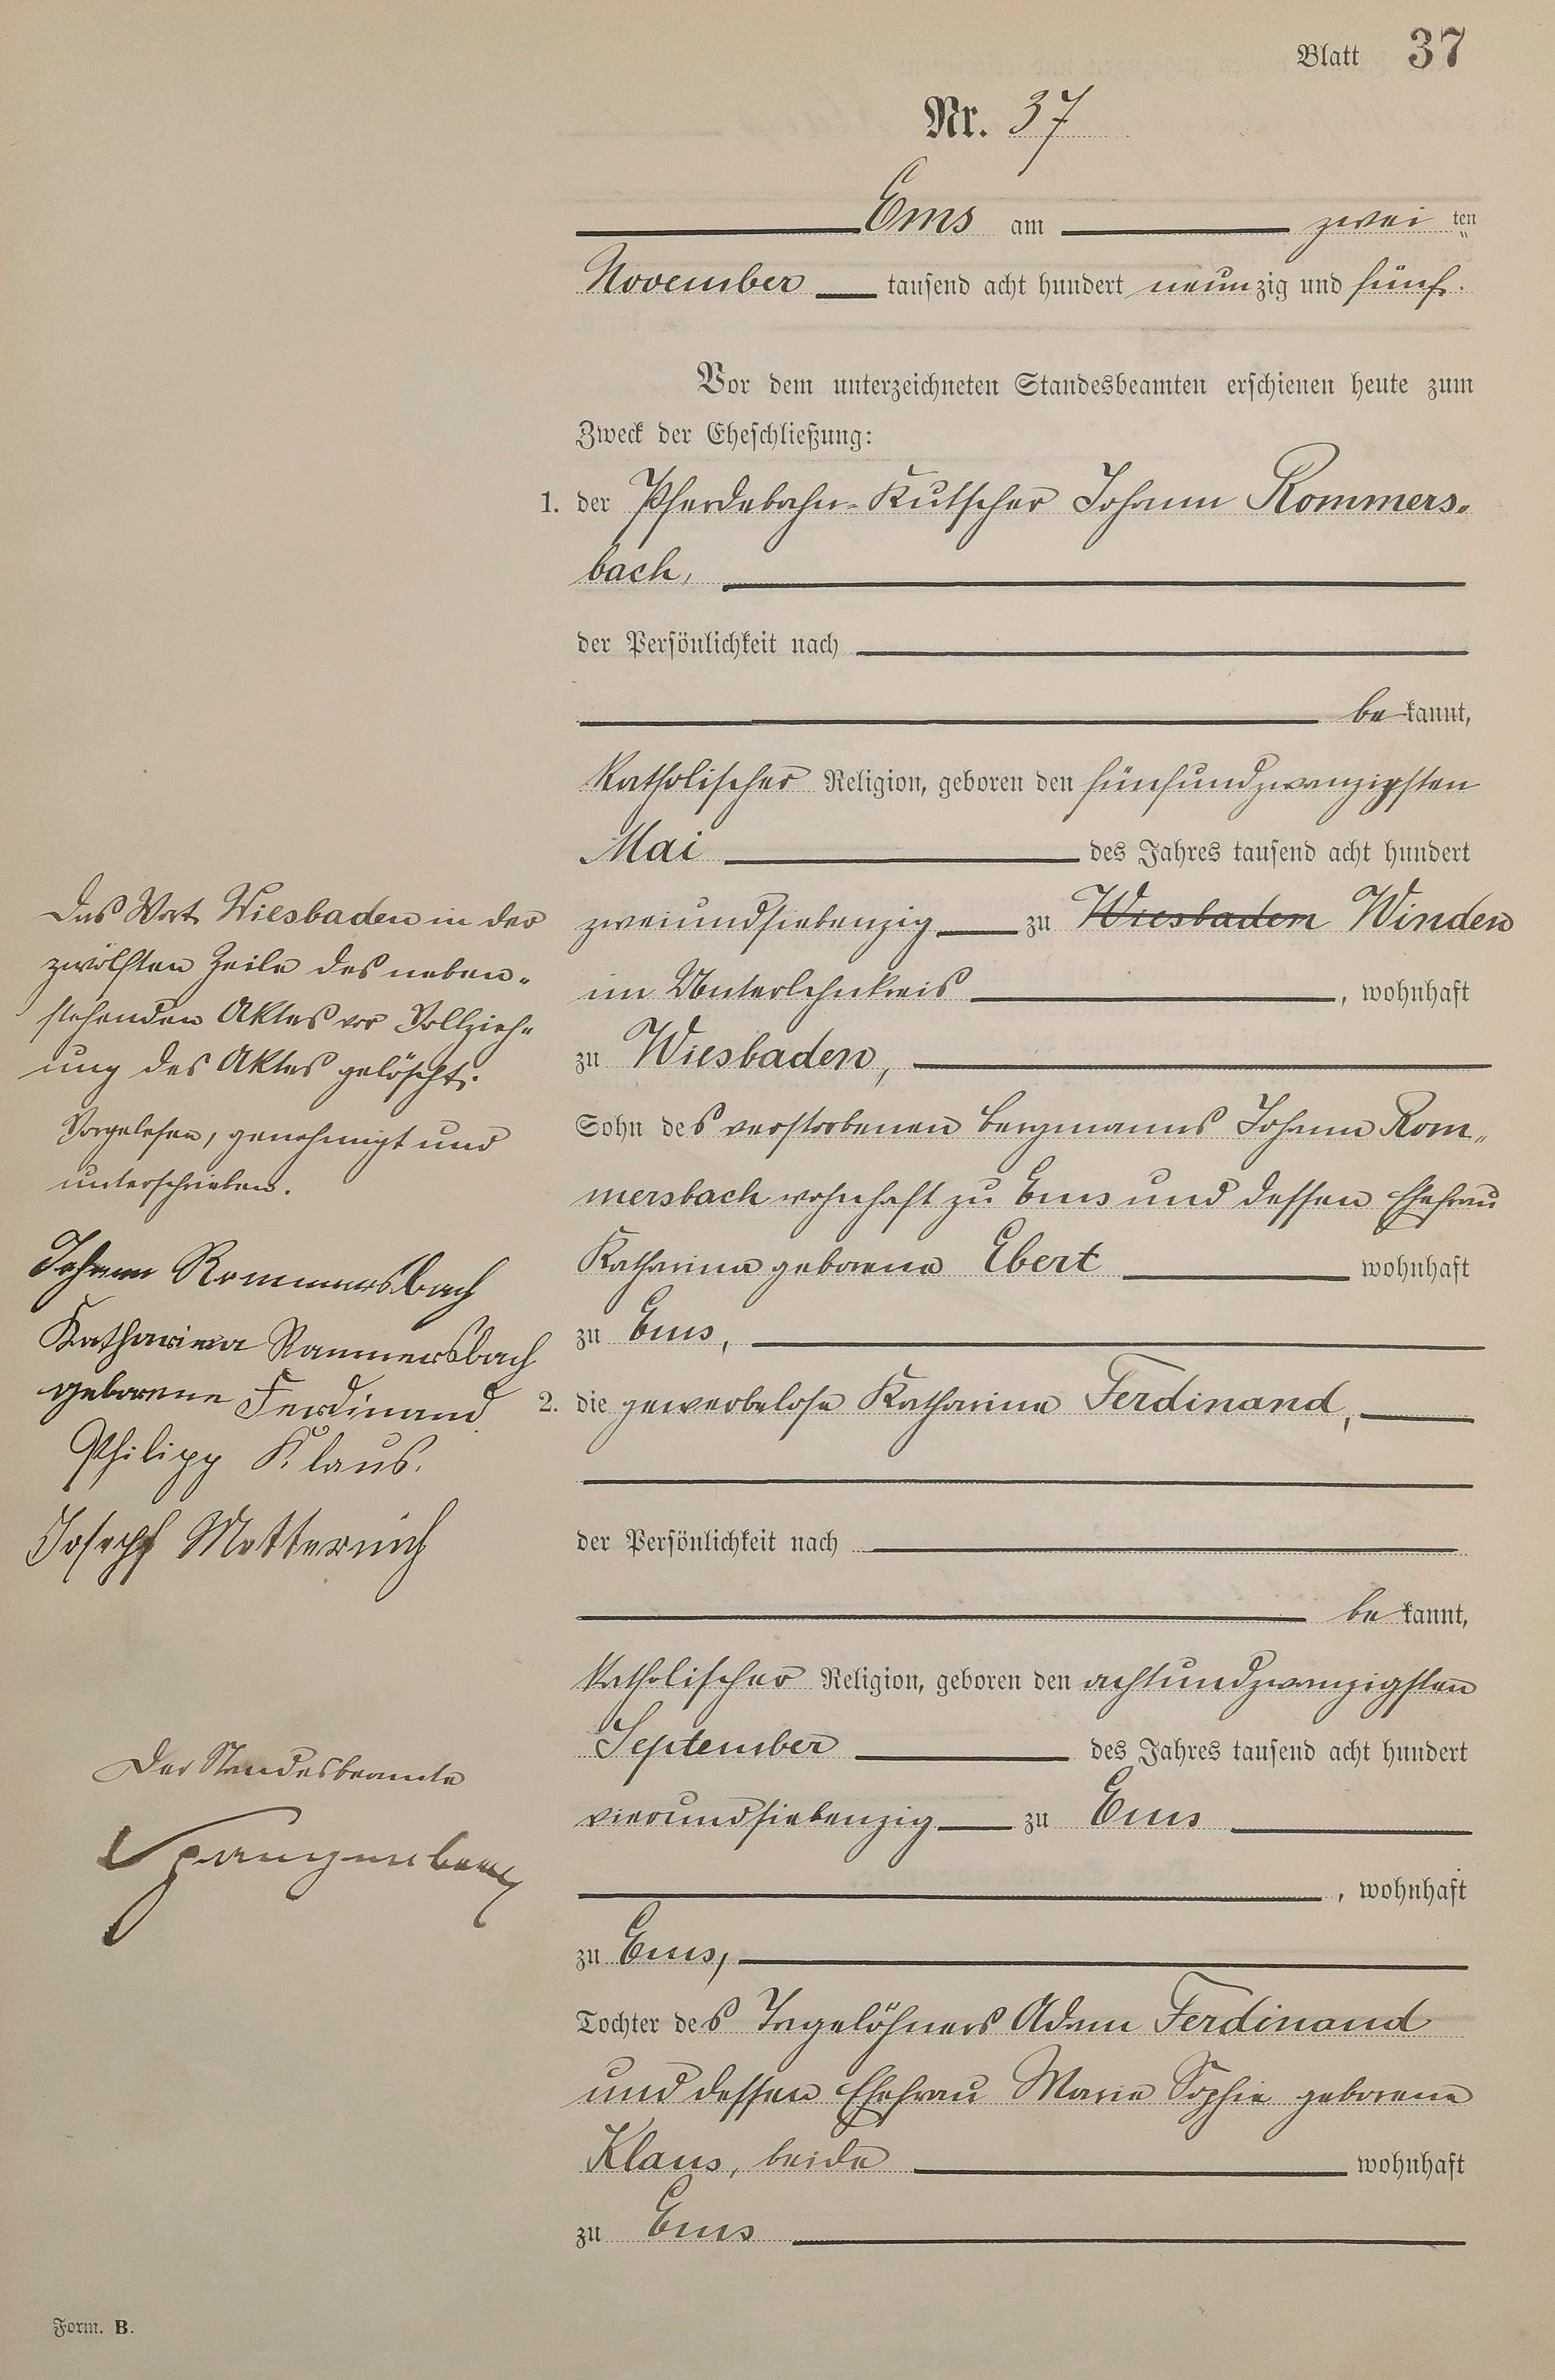 Blatt 37
Nr. 37
Ems am zwei ten
November tausend acht hundert neunzig und fünf.
Vor dem unterzeichneten Standesbeamten erschienen heute zum
Zweck der Eheschließung:
1. der Pferdebahn-Kutscher Johann Rommers-
bach,
der Persönlichkeit nach
be kannt,
katholischer Religion, geboren den fünfundzwanzigsten
Mai des Jahres tausend acht hundert
zweiundsiebenzig zu Wiesbaden Winden
im Unterlahnkreis, wohnhaft
zu Wiesbaden,
Sohn des verstorbenen Bergmanns Johann Rom-
mersbach wohnhaft zu Ems und dessen Ehefrau
Katharina geborene Ebert wohnhaft
zu Ems,
2. die gewerbelose Katharina Ferdinand,
der Persönlichkeit nach
be kannt,
katholischer Religion, geboren den achtundzwanzigsten
September des Jahres tausend acht hundert
vierundsiebenzig zu Ems
, wohnhaft
zu Ems,
Tochter des Tagelöhners Adam Ferdinand
und dessen Ehefrau Marie Sophie geborene
Klaus, beide wohnhaft
zu Ems
Das Wort Wiesbaden in der
zwölften Zeile des neben-
stehenden Aktes vor Vollzieh-
ung des Aktes gelöscht.
Vorgelesen, genehmigt und
unterschrieben.
Johann Rommersbach
Katharina Rammersbach
geborene Ferdinand
Philipp Klaus.
Joseph Metternich
Der Standesbeamte
Spangenberg
Form. B.